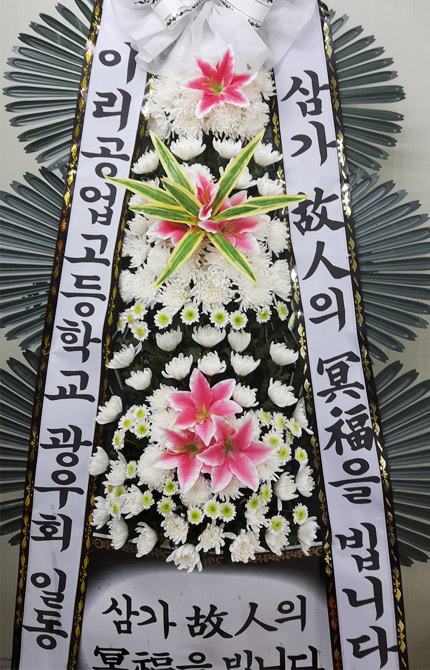 이리공업고등학교 광우회 일동
삼가 故人의 冥福을 빕니다
삼가 故人의
冥福을 빕니다